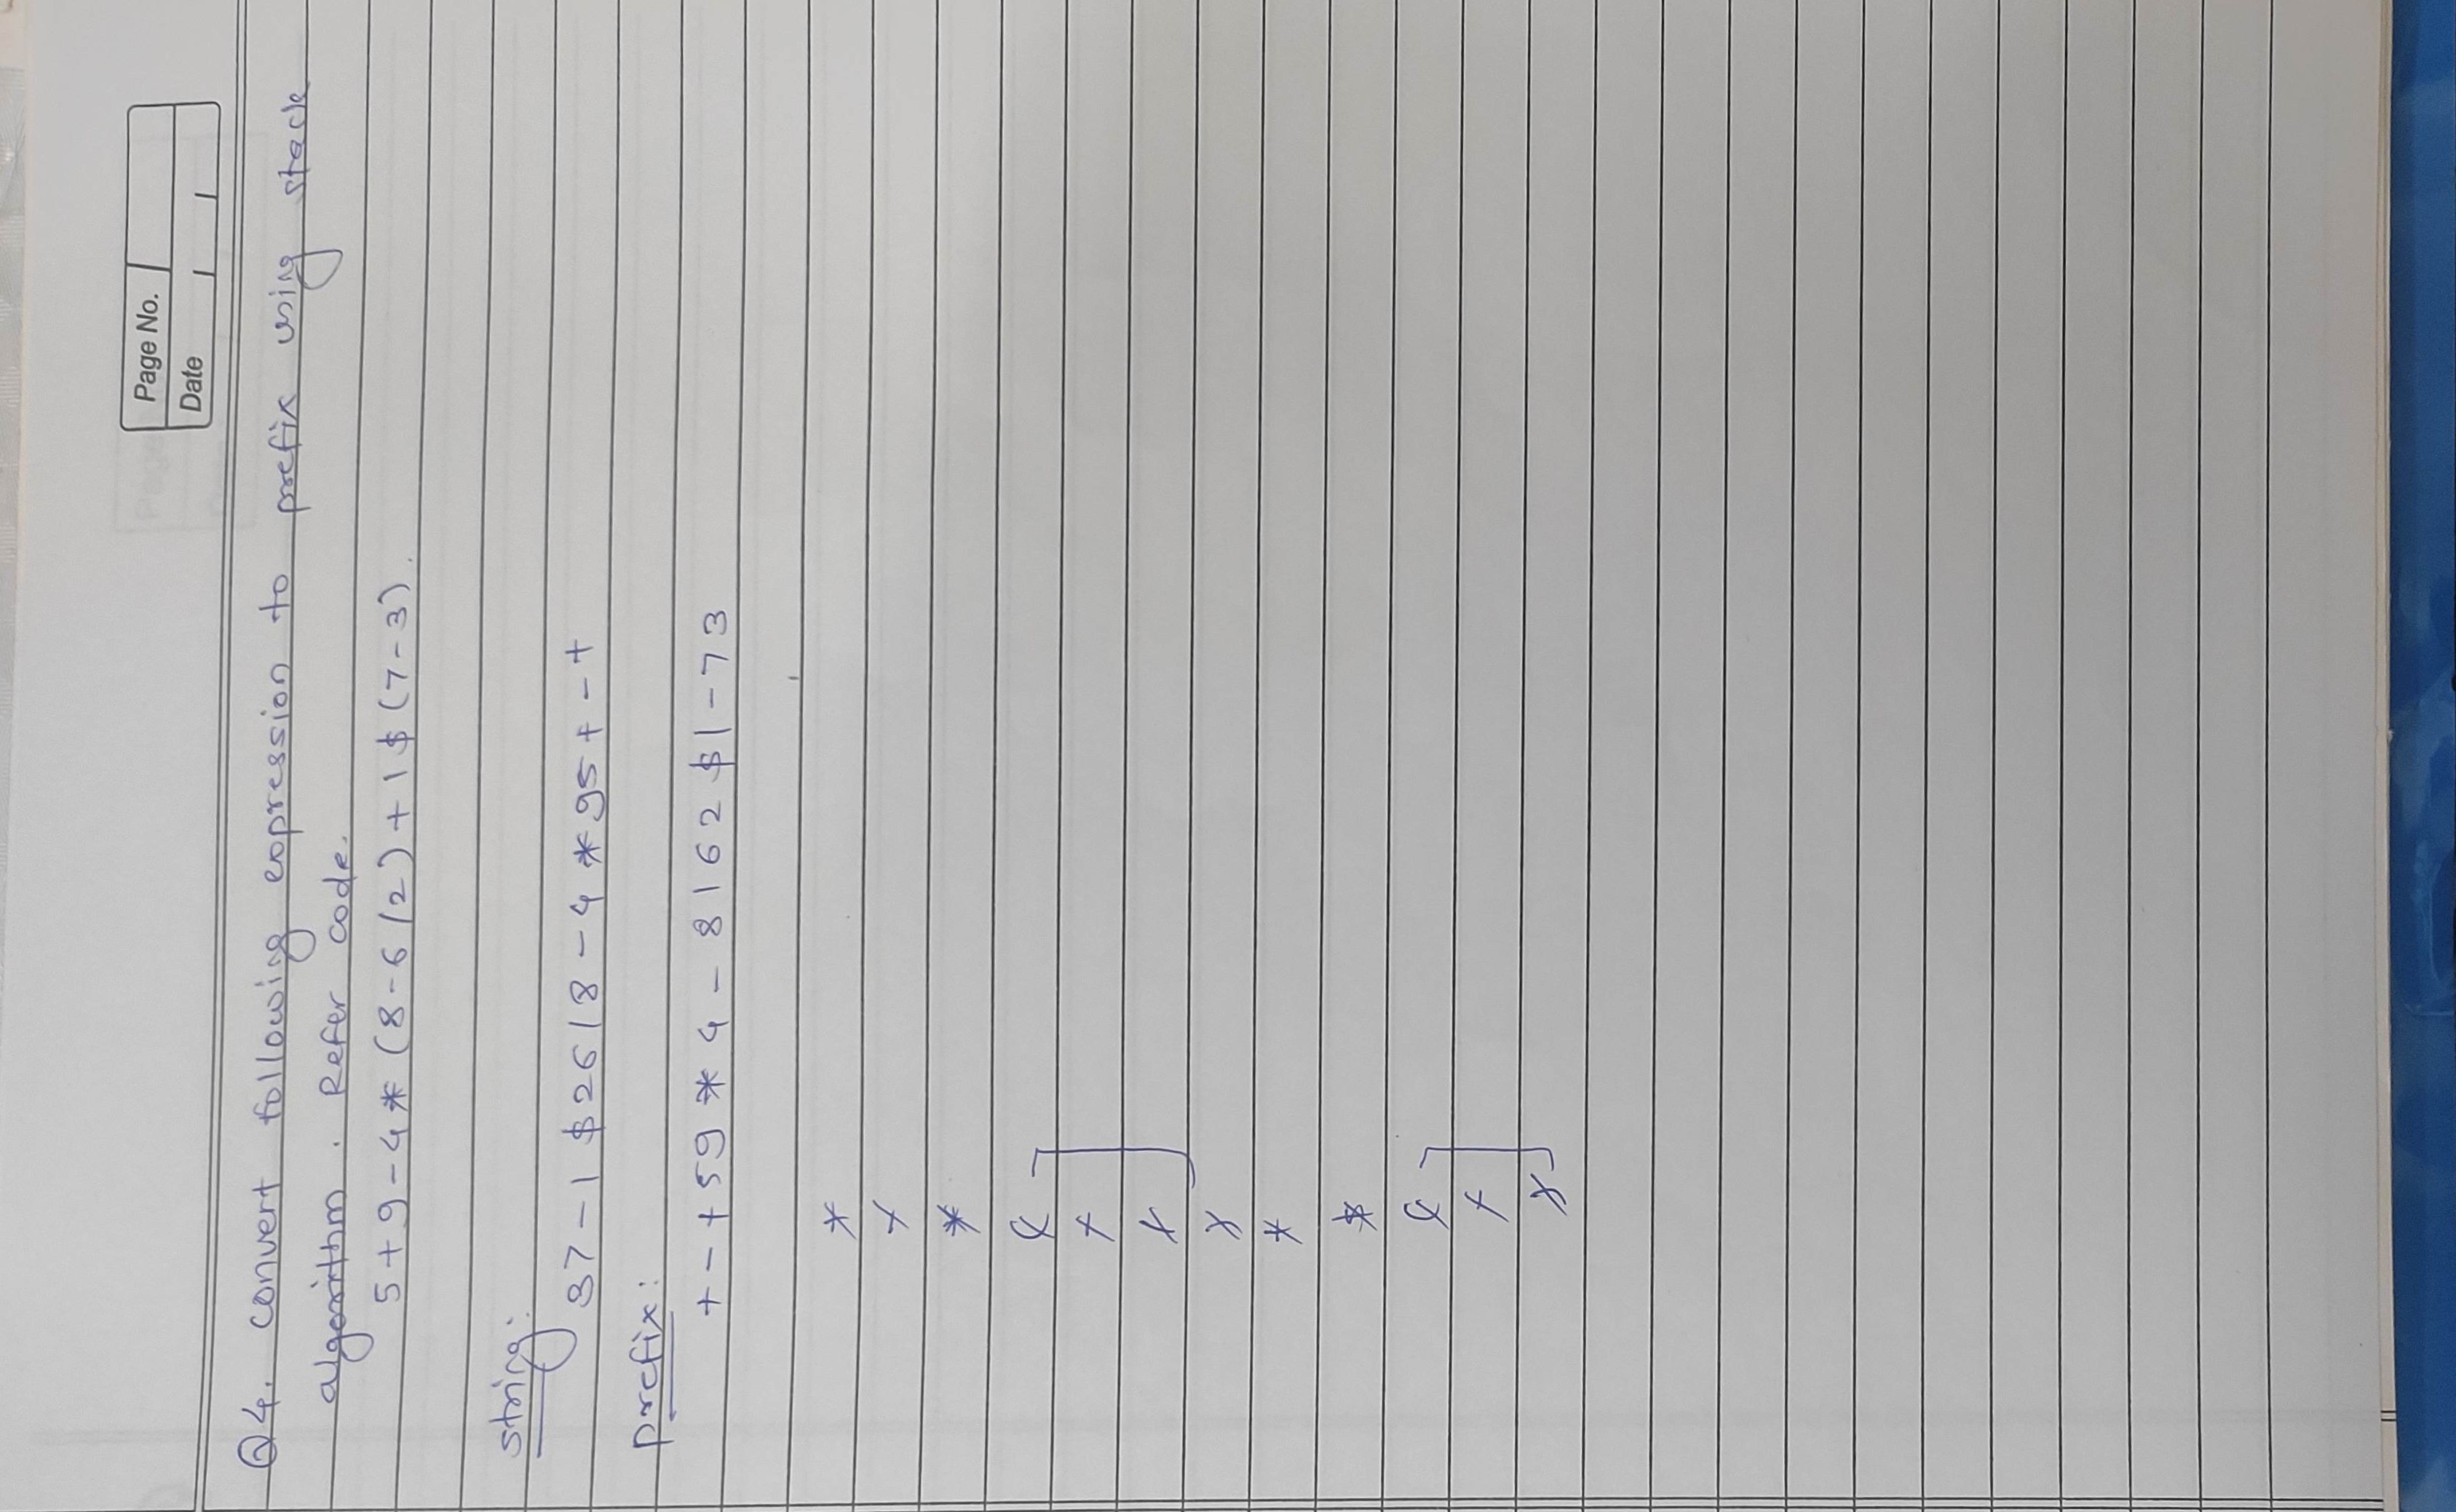 Page No.
Date
Q4. convert following expression to prefix using stack
algorithm. Refer code.
5+9-4*(8-6/2)+1$(7-3).
string:
37-1$26/8-4*95+-+
prefix:
+-+59*4-8/62$1-73
$